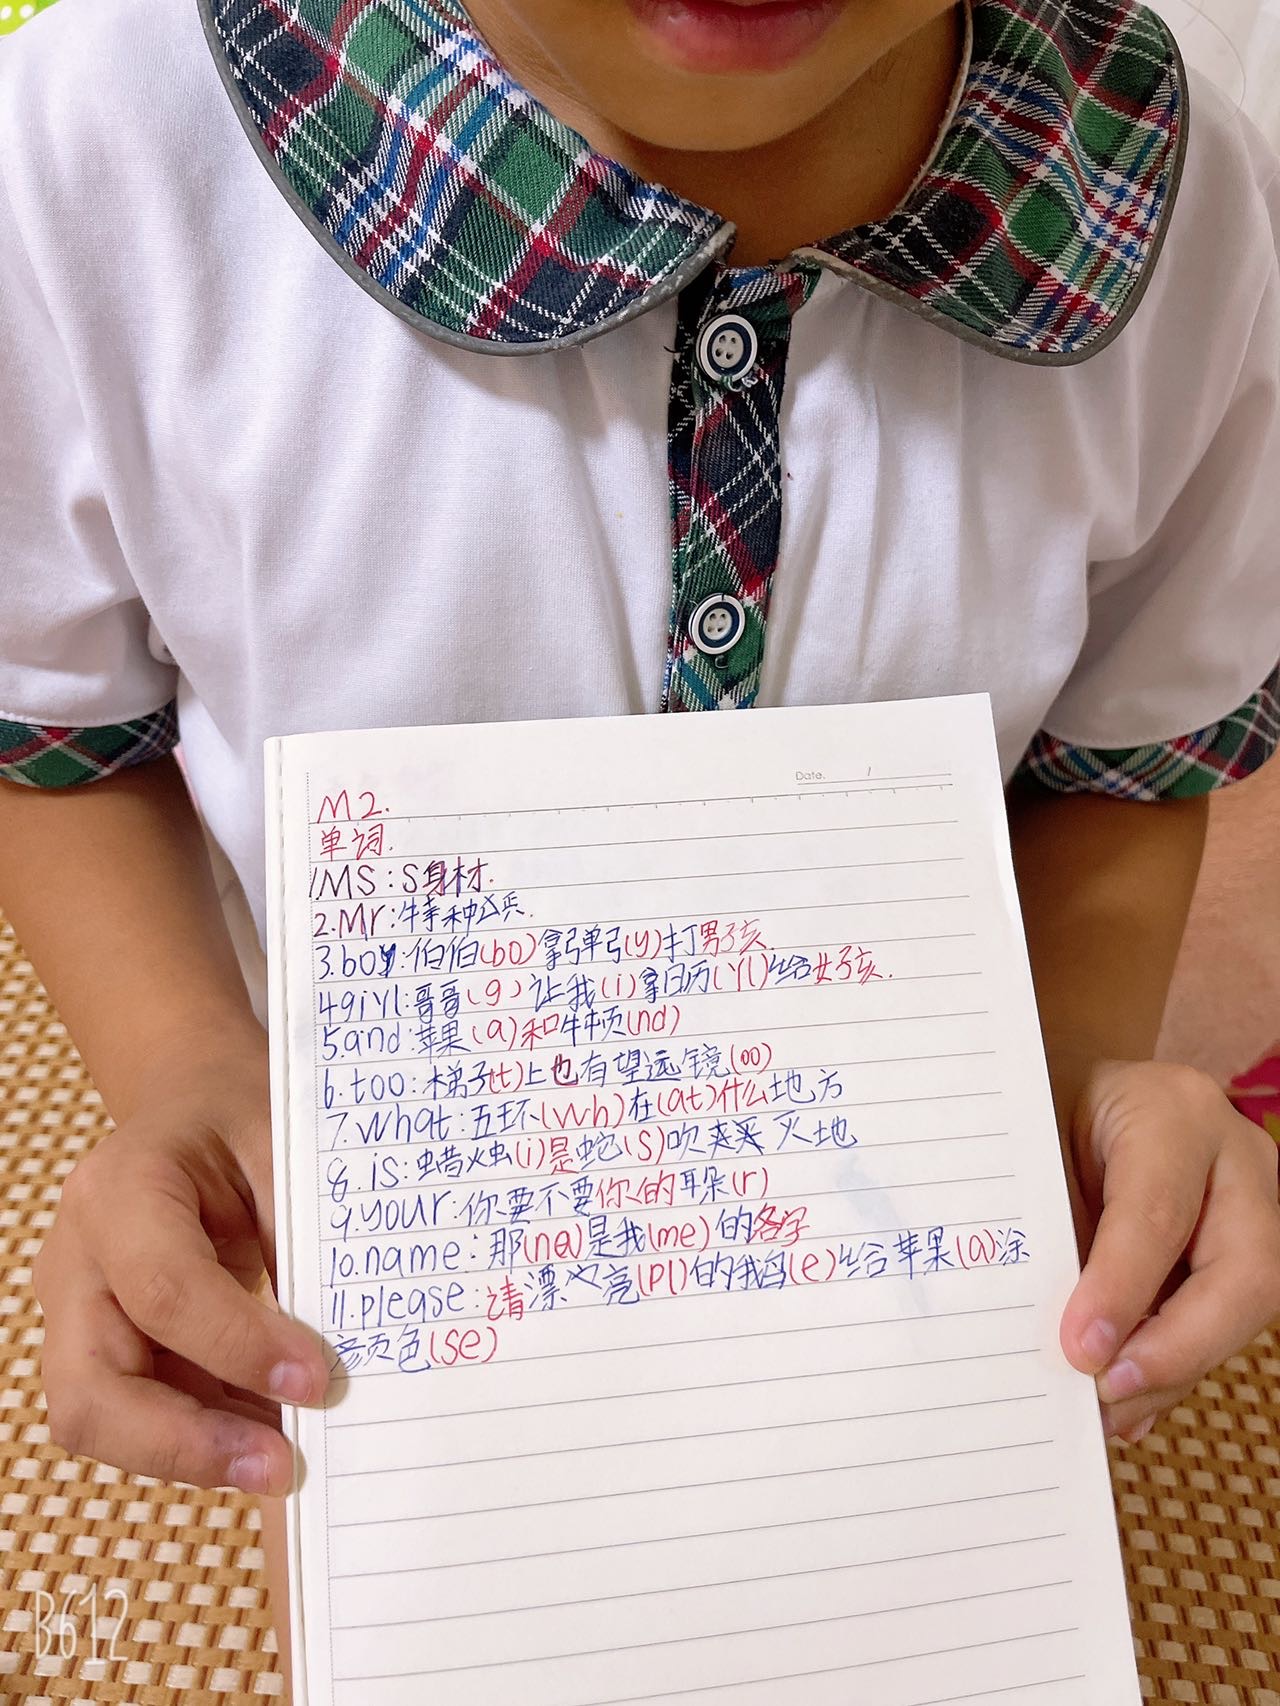 Date. /
M2.
单词.
1MS:S身材.
2.Mr:特种兵.
3.boy:伯伯(bo)拿弹弓(y)打男子孩.
4giYl:哥哥(g)让我(i)拿日历(Yl)给女子孩.
5.and:苹果(a)和牛顿(nd)
6.too:梯子(t)上也有望远镜(oo)
7.what:五环(wh)在(at)什么地方
8.is:蜡火虫(i)是蛇(S)吹灭地
9.your:你要不要你的耳朵(r)
10.name:那(na)是我(me)的名字
11.please:请漂亮(Pl)的我鸟(e)给苹果(a)涂
颜色(se)
B612